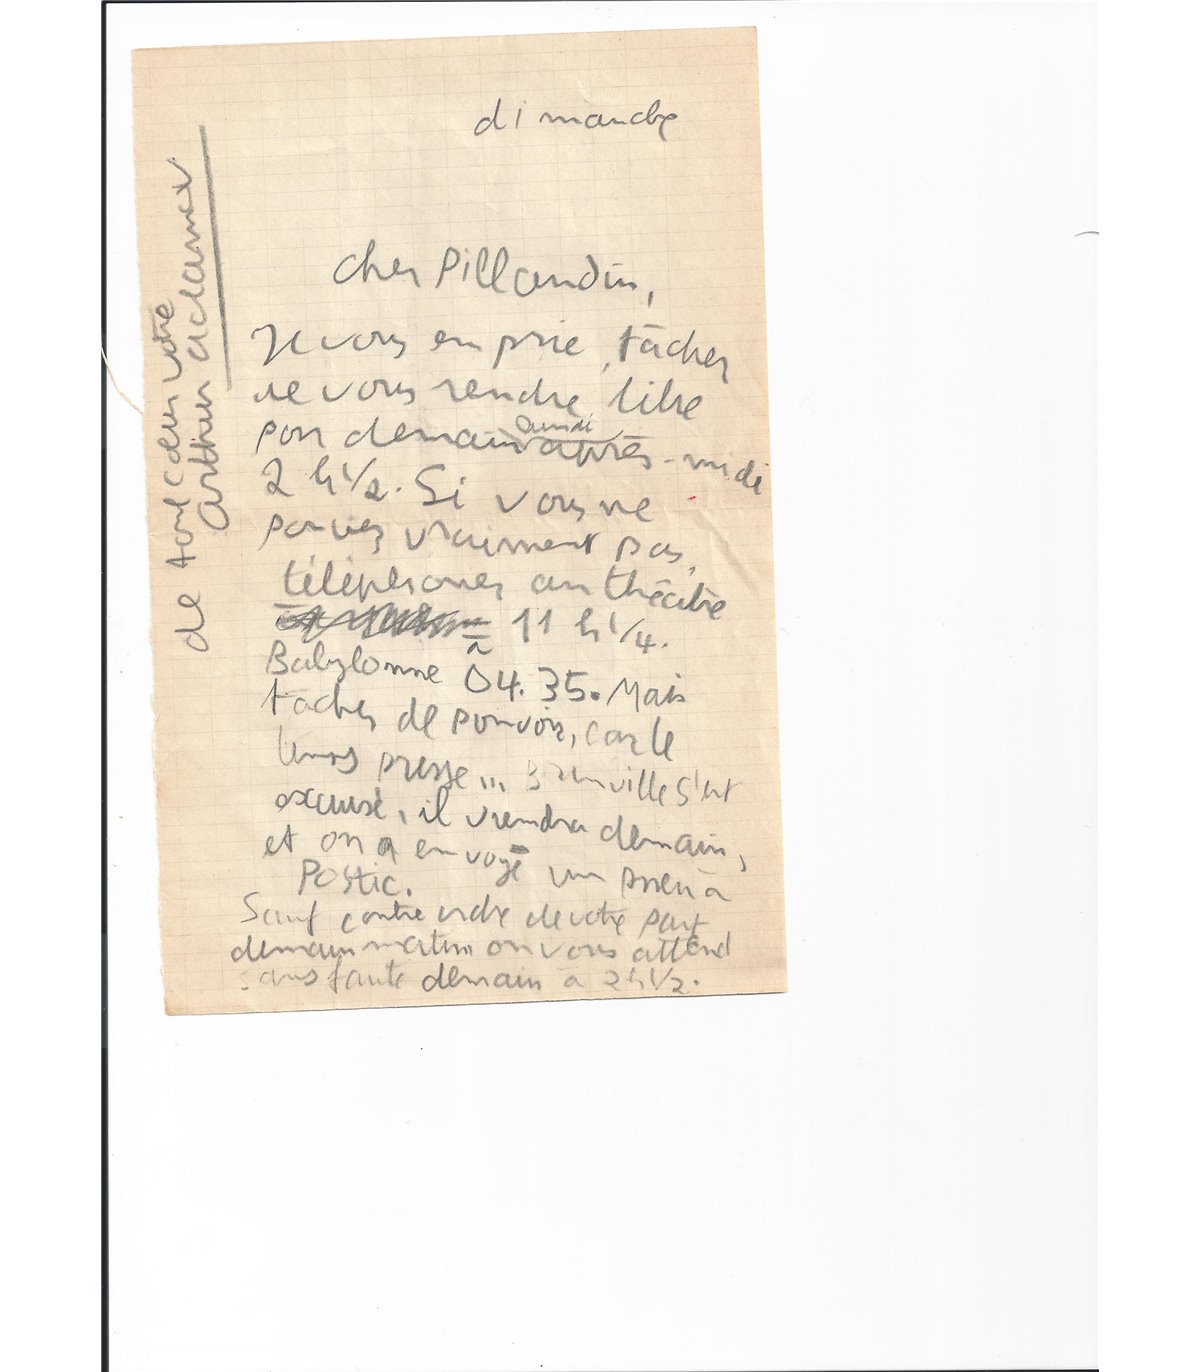 dimanche
cher Pillaudin,
Je vous en prie, tâchez
de vous rendre libre
pour demain après-midi
lundi
2 h 1/2. Si vous ne
pouviez vraiment pas,
téléphonez au théâtre
à 11 h 1/4.
Babylonne 04.35. Mais
tachez de pouvoir, car le
temps presse... s'est
excusé, il viendra demain,
et on a envoyé un pneu à
Postic.
Sauf contre ordre de votre part
demain matin on vous attend
sans faute demain à 2 h 1/2.
de tout cœur votre
Arthur Adamov